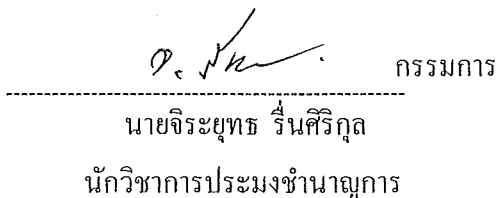 กรรมการ
นายจิระยุทธ รื่นศิริกุล
นักวิชาการประมงชำนาญการ